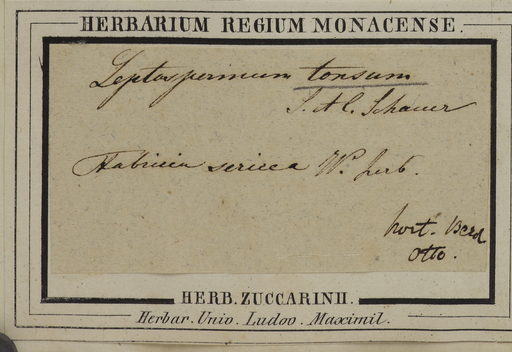 HERBARIUM REGIUM MONACENSE.
Leptospermum tonsum
J. A. C. Schauer
Fabricia sericea W. herb.
hort. Berol
Otto.
HERB. ZUCCARINII.
Herbar. Univ. Ludov. Maximil.